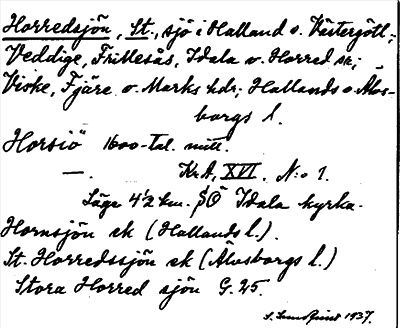 Horredsjön, St., sjö i Halland o. Västergötl.;
Veddige, Frillesås, Idala o. Horred sk;
Viske, Fjäre o. Marks hdr; Hallands o. Älvs-
borgs l.
Horsiö 1600-tal. mitt.
—. KrA, XVI. N:o 1.
Läge 4½ km. SÖ Idala kyrka.
Hornsjön ek (Hallands l.).
St. Horredssjön ek (Älvsborgs l.)
Stora Horred sjön G. 25.
S. 1937.